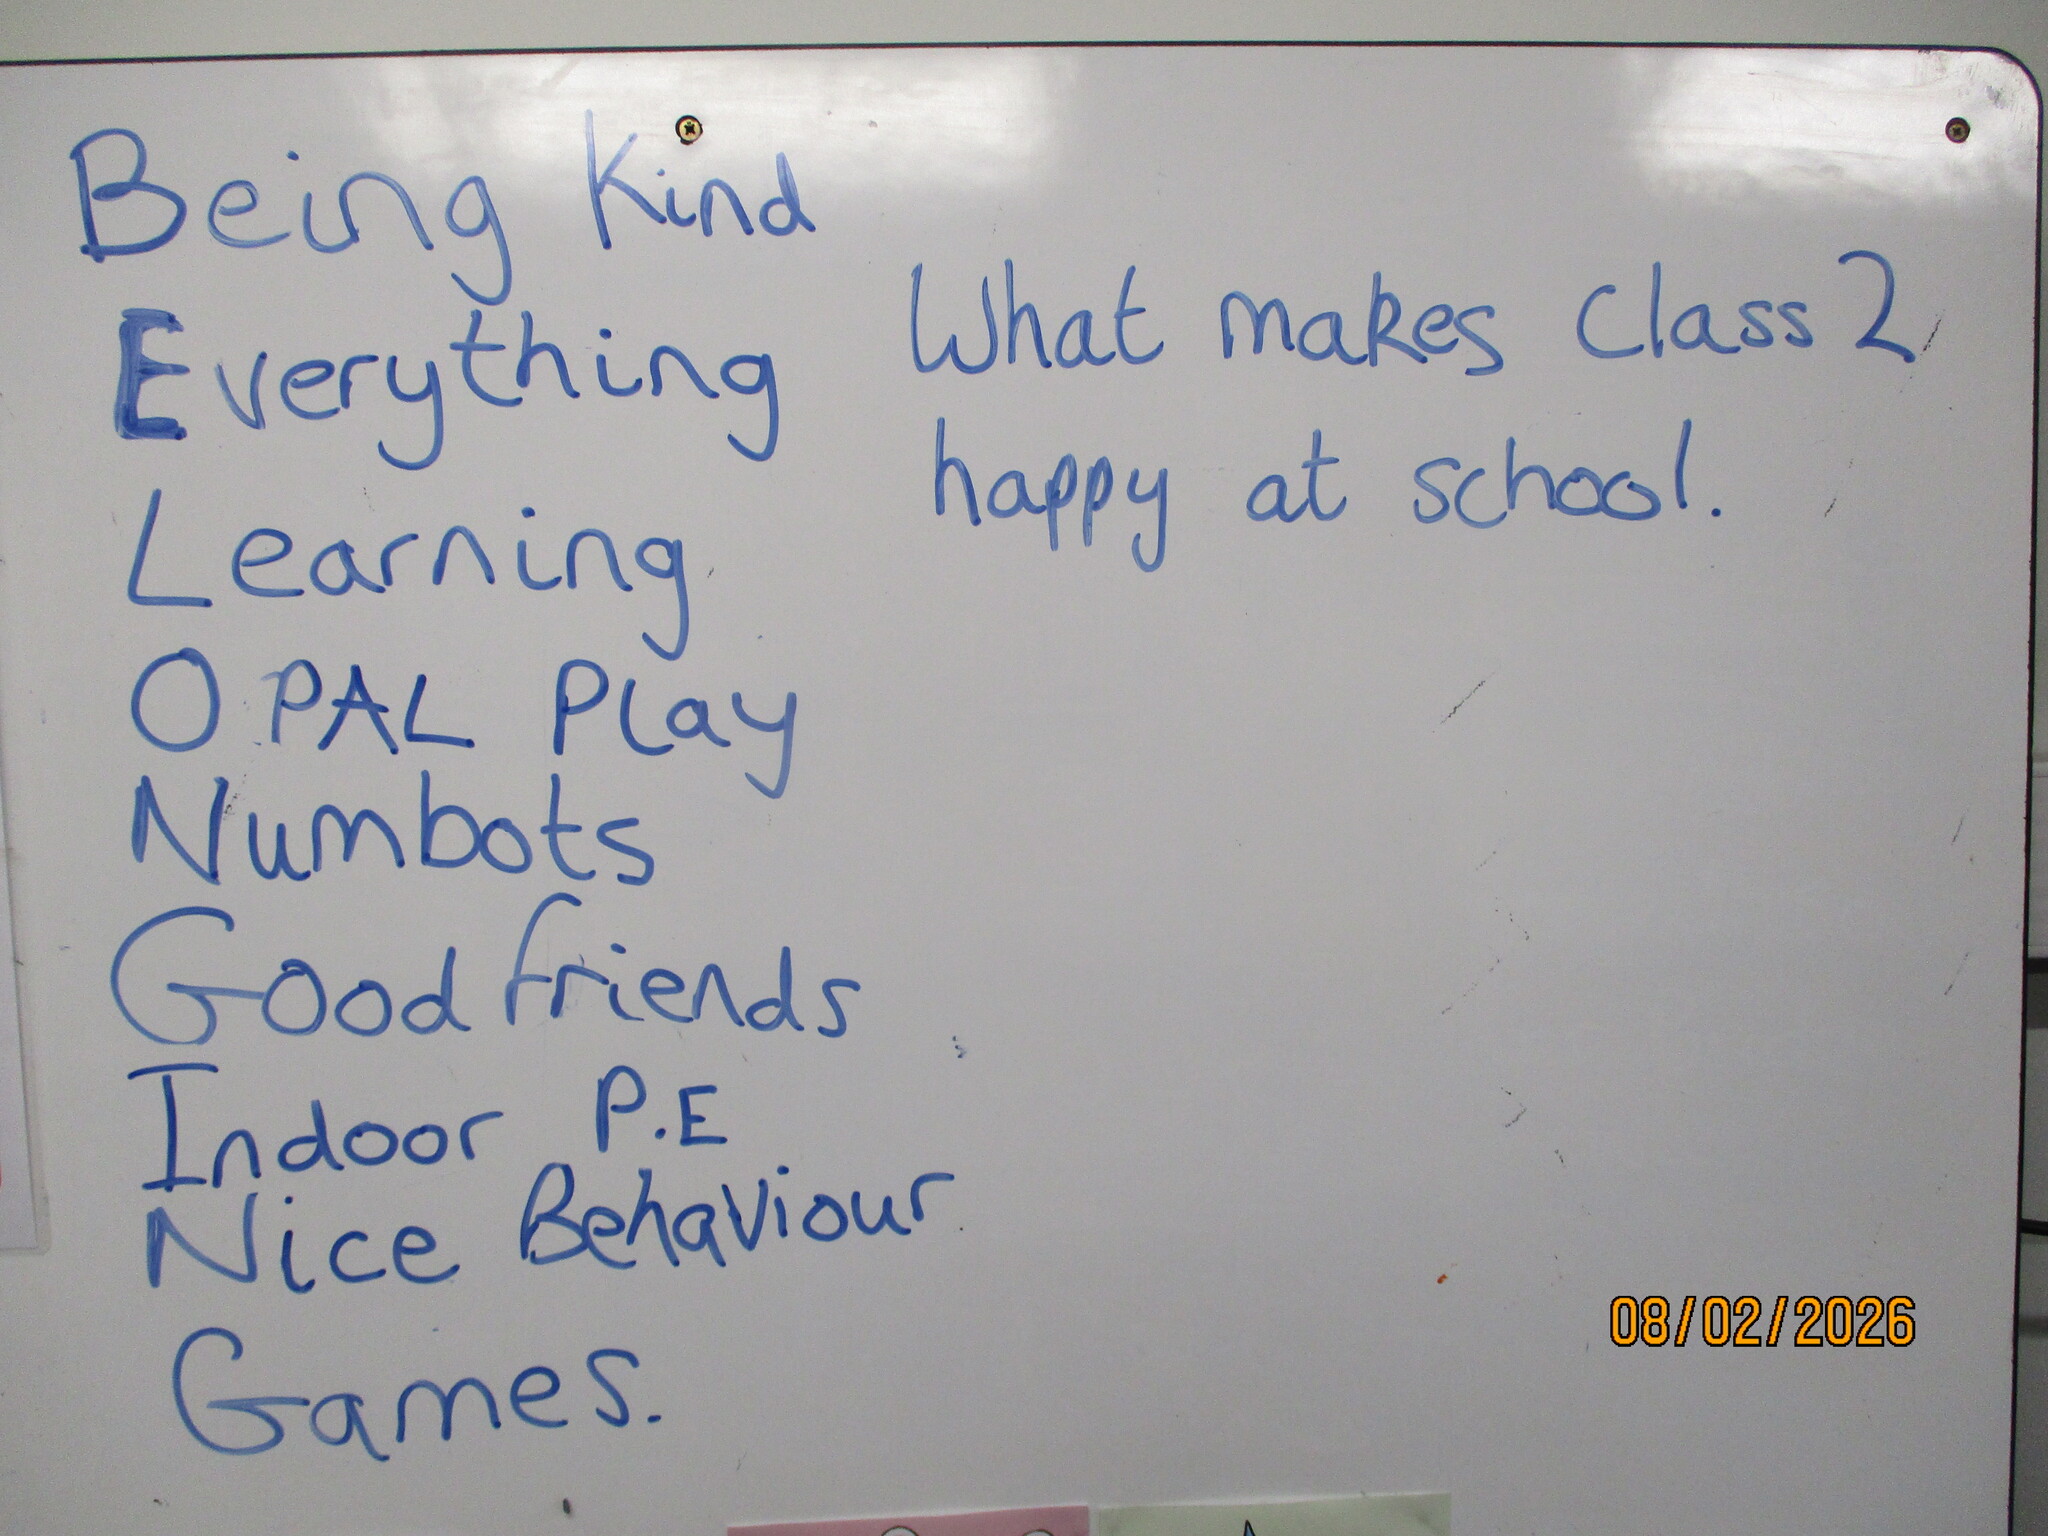 Being Kind
Everything
Learning
OPAL Play
Numbots
Good friends
Indoor P.E
Nice Behaviour
Games.
What makes Class 2
happy at school.
08/02/2026